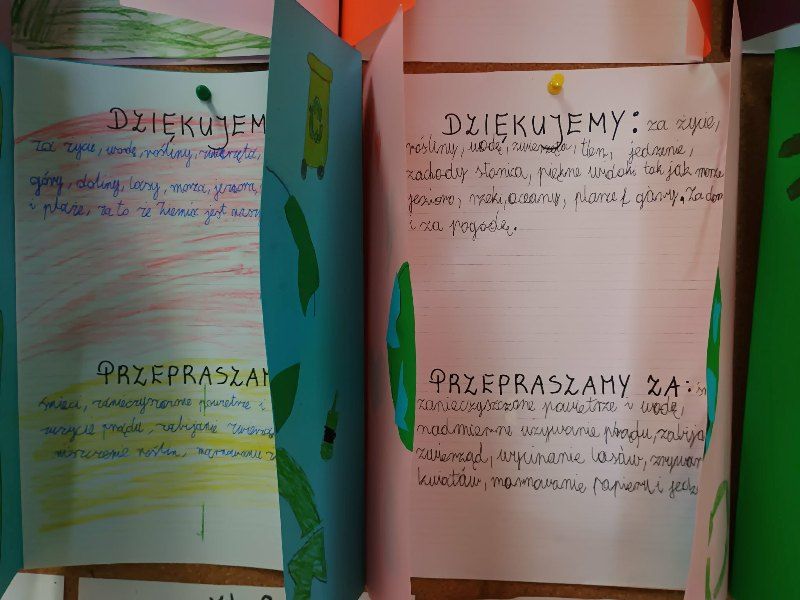 DZIĘKUJEM
za życie, wodę, rośliny, zwierzęta,
góry, doliny, lasy, morza, jeziora,
i plaże, za to że Ziemia jest nasz
PRZEPRASZAM
śmieci, zanieczyszczone powietrze i
zużycie prądu, zabijanie zwierzą
niszczenie roślin, marnowanie
DZIĘKUJEMY: za życie,
rośliny, wodę, zwierzęta, tlen, jedzenie,
zachody słońca, piękne widoki tak jak morze
jezioro, rzeki, oceany, planet góry. Za dom
i za pogodę.
PRZEPRASZAMY ZA: śm
zanieczyszczone powietrze i wodę,
nadmierne używanie prądu, zabija
zwierząd, wycinanie lasów, zrywan
kwiatów, marnowanie papieru i jedz